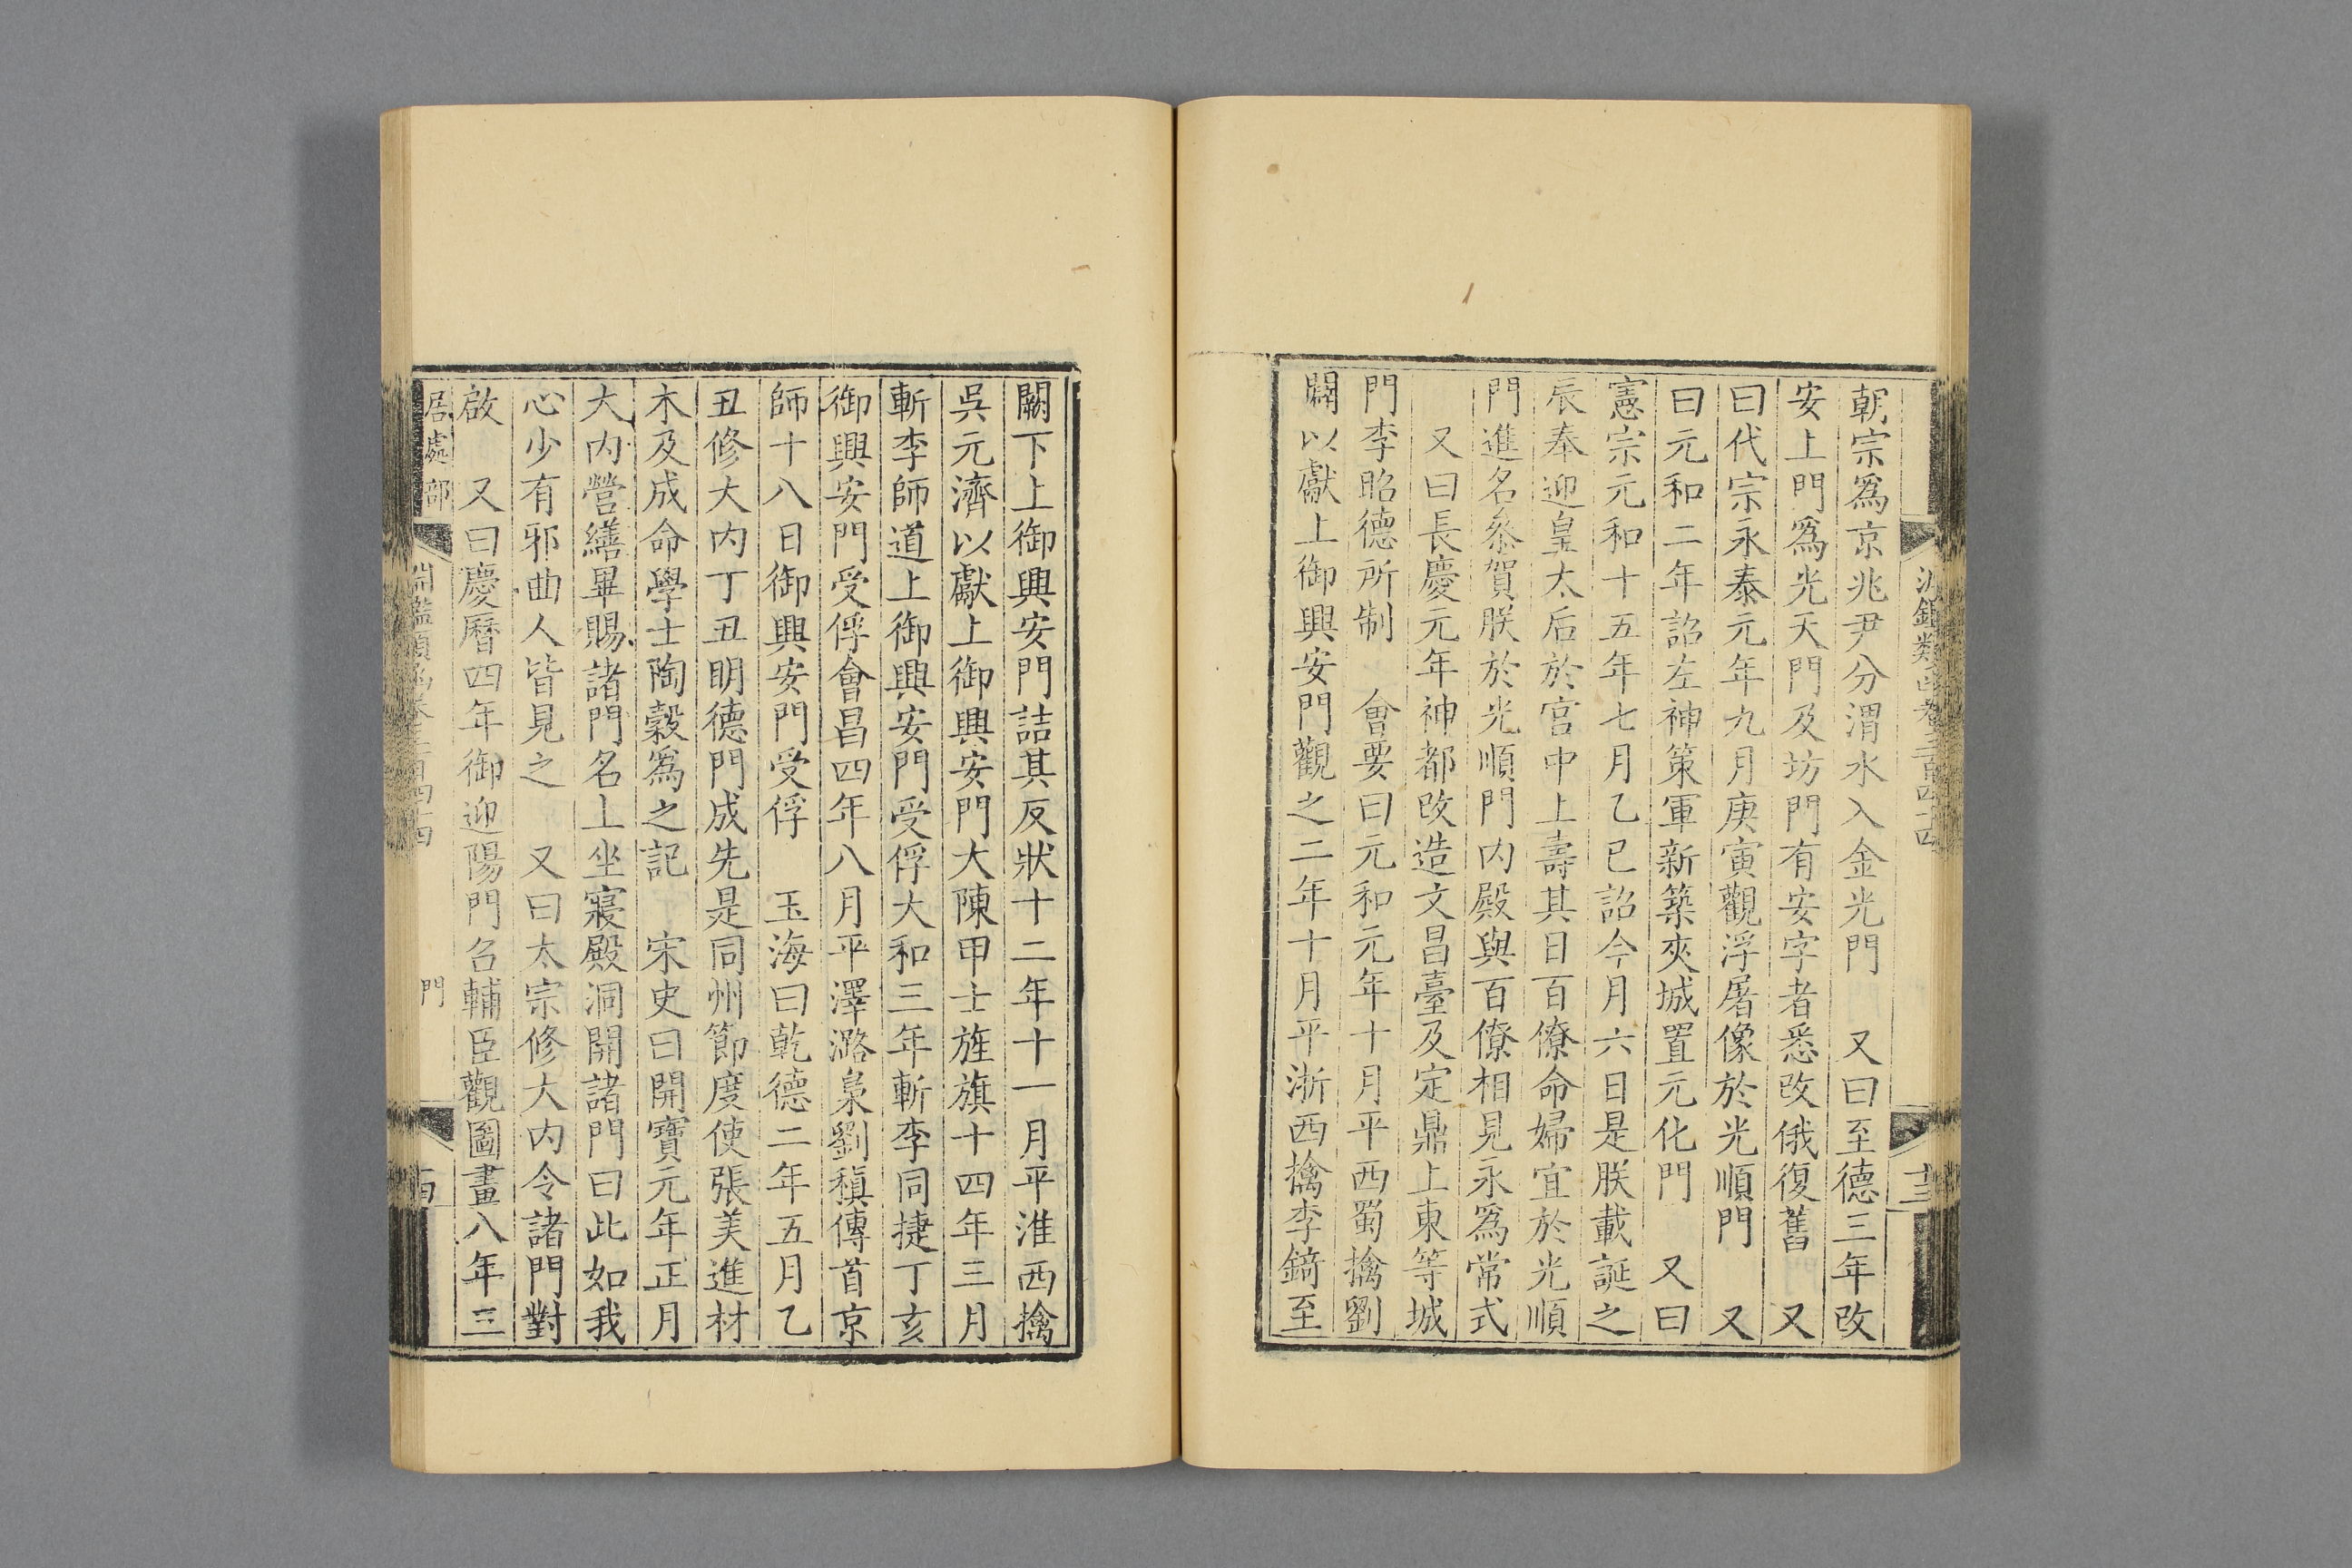 朝宗爲京兆尹分渭水入金光門　又曰至德三年改
安上門爲光天門及坊門有安字者悉改俄復舊　又
曰代宗永泰元年九月庚寅觀浮屠像於光順門　又
曰元和二年詔左神策軍新築夾城置元化門　又曰
憲宗元和十五年七月乙巳詔今月六日是朕載誕之
辰奉迎皇太后於宮中上壽其日百僚命婦宜於光順
門進名叅賀朕於光順門内殿與百僚相見永爲常式
又曰長慶元年神都改造文昌臺及定鼎上東等城
門李昭德所制　會要曰元和元年十月平西蜀擒劉
闢以獻上御興安門觀之二年十月平淅西擒李錡至
闕下上御興安門詰其反狀十二年十一月平淮西擒
吳元濟以獻上御興安門大陳甲士旌旗十四年三月
斬李師道上御興安門受俘大和三年斬李同捷丁亥
御興安門受俘會昌四年八月平澤潞梟劉稹傳首京
師十八日御興安門受俘　玉海曰乾德二年五月乙
丑修大内丁丑明德門成先是同州節度使張美進材
木及成命學士陶穀爲之記　宋史曰開寶元年正月
大内營繕畢賜諸門名上坐寢殿洞開諸門曰此如我
心少有邪曲人皆見之　又曰太宗修大内令諸門對
啟　又曰慶曆四年御迎陽門召輔臣觀圖畫八年三
居處部
淵鑑類函卷三百四十四
門